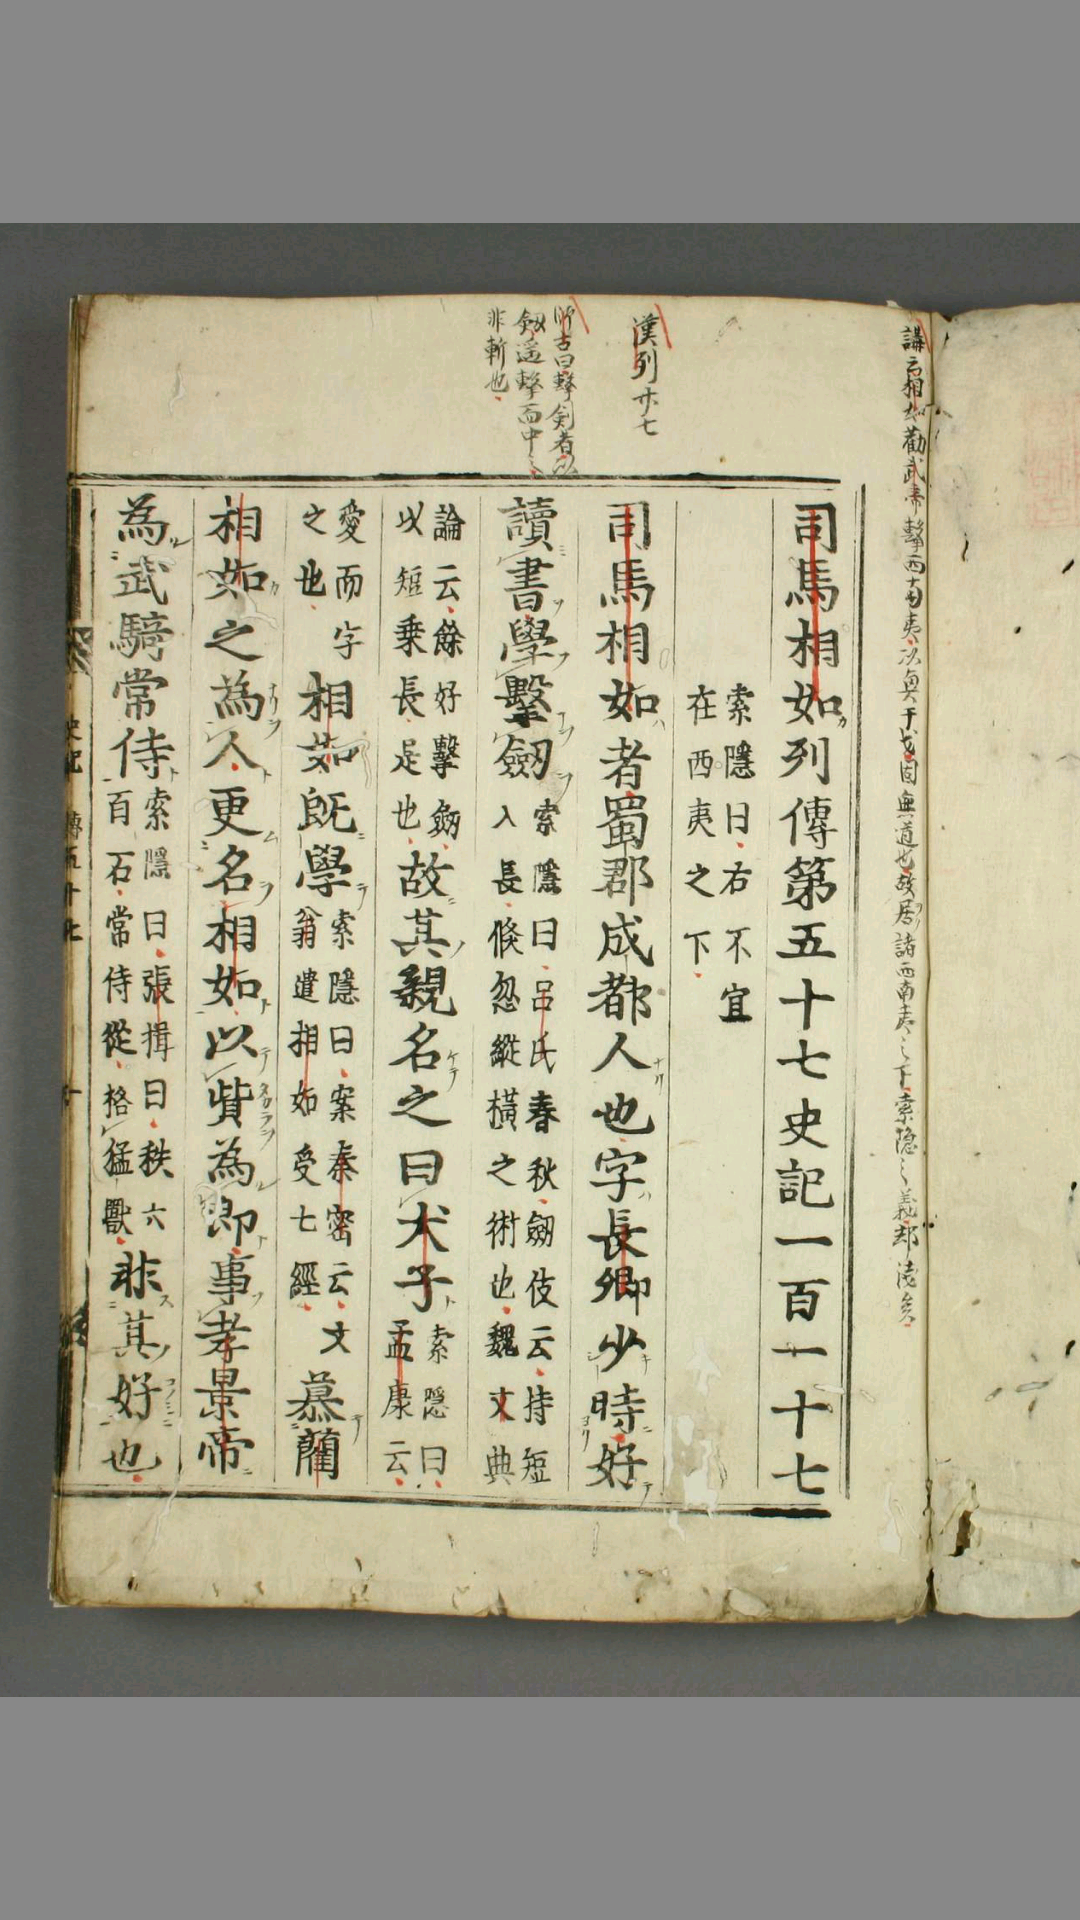 講云相如勸武帝擊西南夷以輿于戎固無道也故居諸西南夷之下索隱之義却淺矣
漢列廿七
師古曰擊剣者以
劔遥擊而中之
非斬也
司馬相如列傳第五十七史記一百一十七
索隱曰右不宜
在西夷之下
司馬相如者蜀郡成都人也字長卿少時好
讀書學擊劔索隱曰呂氏春秋劔伎云持短
入長倐忽縱橫之術也魏文典
論云餘好擊劔
以短乗長是也故其親名之曰犬子索隱曰
孟康云
愛而字
之也相如旣學索隱曰案秦密云文
翁遣相如受七經慕藺
相如之為人更名相如以貲為郎事孝景帝
為武騎常侍索隱曰張揖曰秩六
百石常侍從格猛獸非其好也
史記 傳五十七